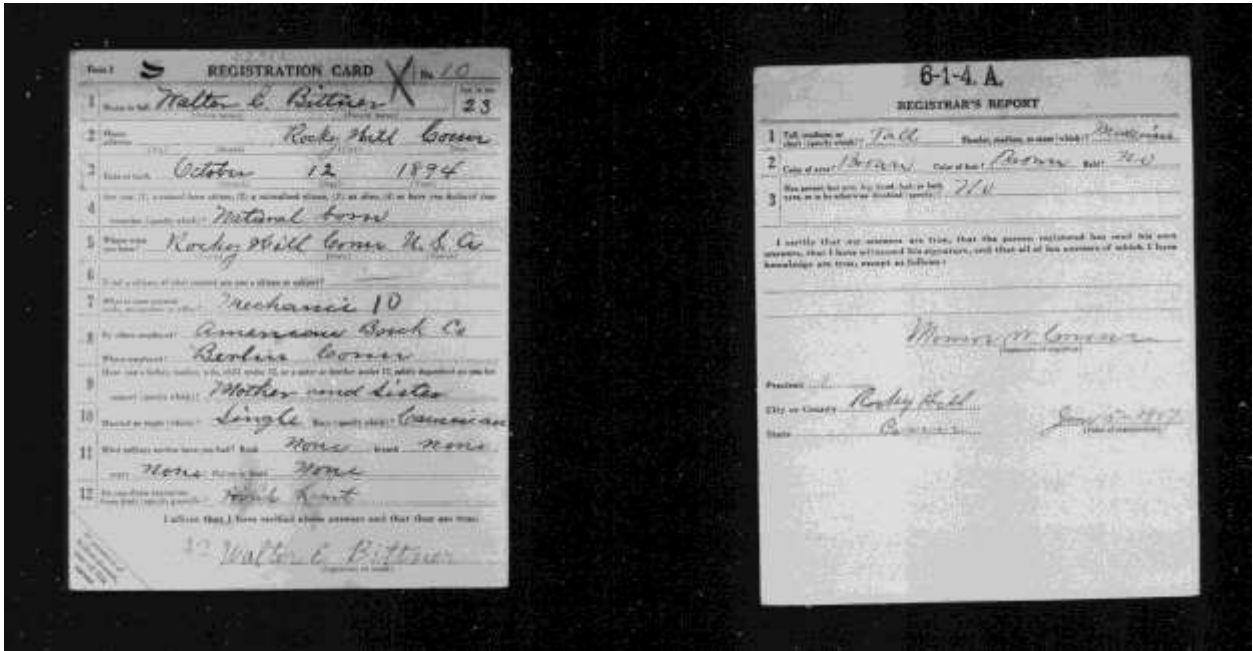 Form 1 REGISTRATION CARD No. 10
1 Name in full Walter C. Bittner Age, in yrs. 23
2 Home address Rocky Hill Conn
3 Date of birth October 12 1894
4 Are you (1) a natural born citizen, (2) a naturalized citizen, (3) an alien, (4) or have you declared your
intention (specify which)? Natural born
5 Where were you born? Rocky Hill Conn U.S.A
6 If not a citizen, of what country are you a citizen or subject?
7 What is your present trade, occupation, or office? Mechanic 10
8 By whom employed? American Bosch Co
Where employed? Berlin Conn
9 Have you a father, mother, wife, child under 12, or a sister or brother under 12, solely dependent on you for
support (specify which)? Mother and Sister
10 Married or single (which)? Single Race (specify which)? Caucasian
11 What military service have you had? Rank None branch None
years None Nation or State None
12 Do you claim exemption from draft (specify grounds)?
I affirm that I have verified above answers and that they are true.
Walter C Bittner
(Signature or mark)
6-1-4. A.
REGISTRAR'S REPORT
1 Tall, medium, or short (specify which)? Tall Slender, medium, or stout (which)?
2 Color of eyes? Brown Color of hair? Brown Bald? No
3 Has person lost arm, leg, hand, foot, or both
eyes, or is he otherwise disabled (specify)? No
I certify that my answers are true, that the person registered has read his own
answers, that I have witnessed his signature, and that all of his answers of which I have
knowledge are true, except as follows:
(Signature of registrar)
Precinct
City or County Rocky Hill
State Conn
(Date of registration)